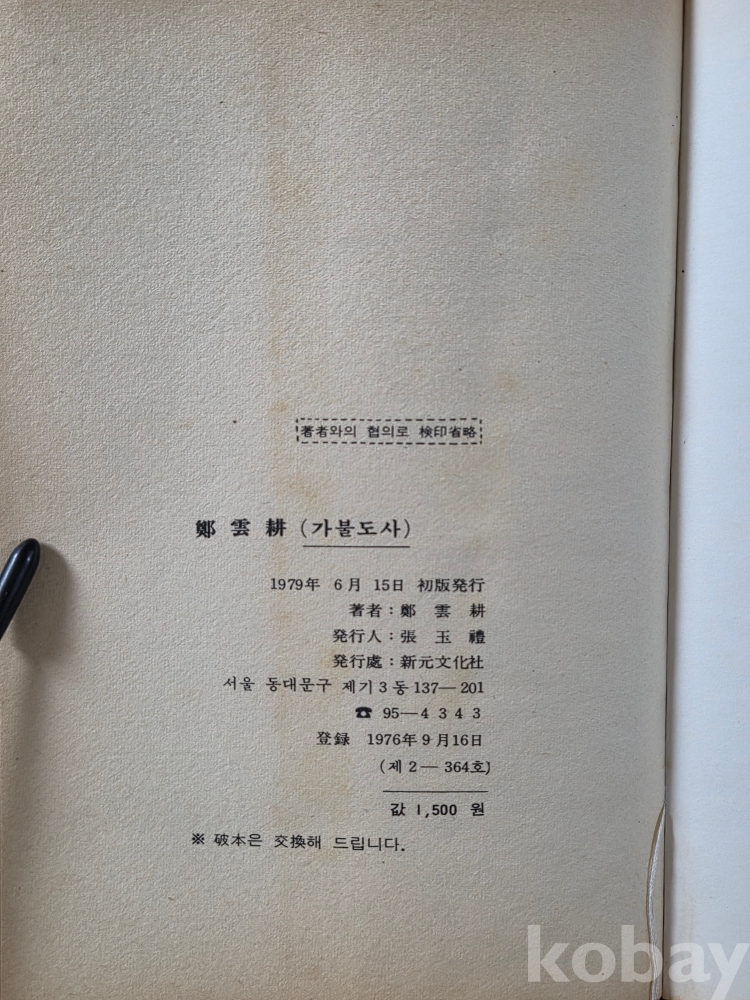 著者와의 협의로 検印省略
鄭雲耕 (가불도사)
1979年 6月 15日 初版発行
著者 : 鄭雲耕
発行人 : 張玉禮
発行處 : 新元文化社
서울 동대문구 제기 3 동 137—201
☎ 95—4343
登録 1976年 9月 16日
(제 2 — 364호)
값 1,500 원
※ 破本은 交換해 드립니다.
kobay